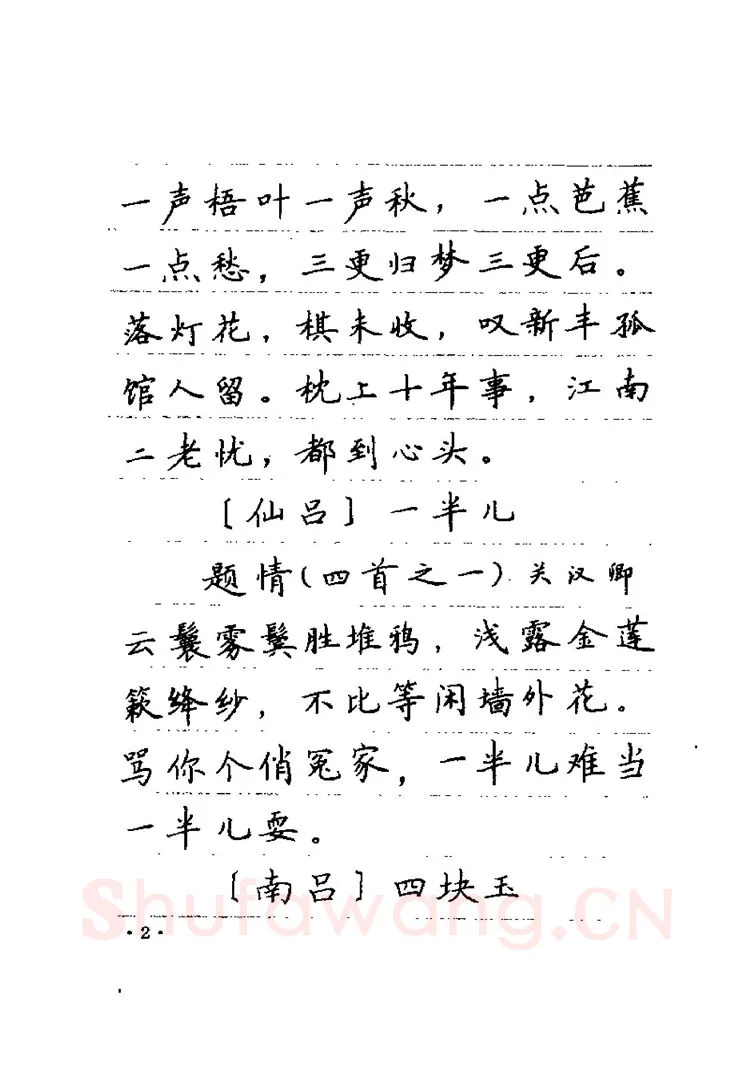 一声梧叶一声秋，一点芭蕉
一点愁，三更归梦三更后。
落灯花，棋未收，叹新丰孤
馆人留。枕上十年事，江南
二老忧，都到心头。
〔仙吕〕一半儿
题情(四首之一)关汉卿
云鬟雾鬓胜堆鸦，浅露金莲
簌绛纱，不比等闲墙外花。
骂你个俏冤家，一半儿难当
一半儿耍。
〔南吕〕四块玉
Shufawang.CN
·2·